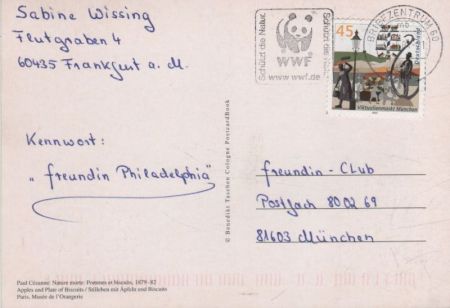 Sabine Wissing
Flutgraben 4
60435 Frankfurt a. M.
Kennwort:
"freundin Philadelphia"
Paul Cézanne: Nature morte: Pommes et biscuits, 1879–82
Apples and Plate of Biscuits / Stilleben mit Äpfeln und Biscuits
Paris, Musée de l'Orangerie
© Benedikt Taschen Cologne PostcardBook
Schützt die Natur.
WWF
www.wwf.de
Schützt die Natur.
BRIEFZENTRUM 60
45
Viktualienmarkt München
freundin - CLUB
Postfach 80 02 69
81603 München